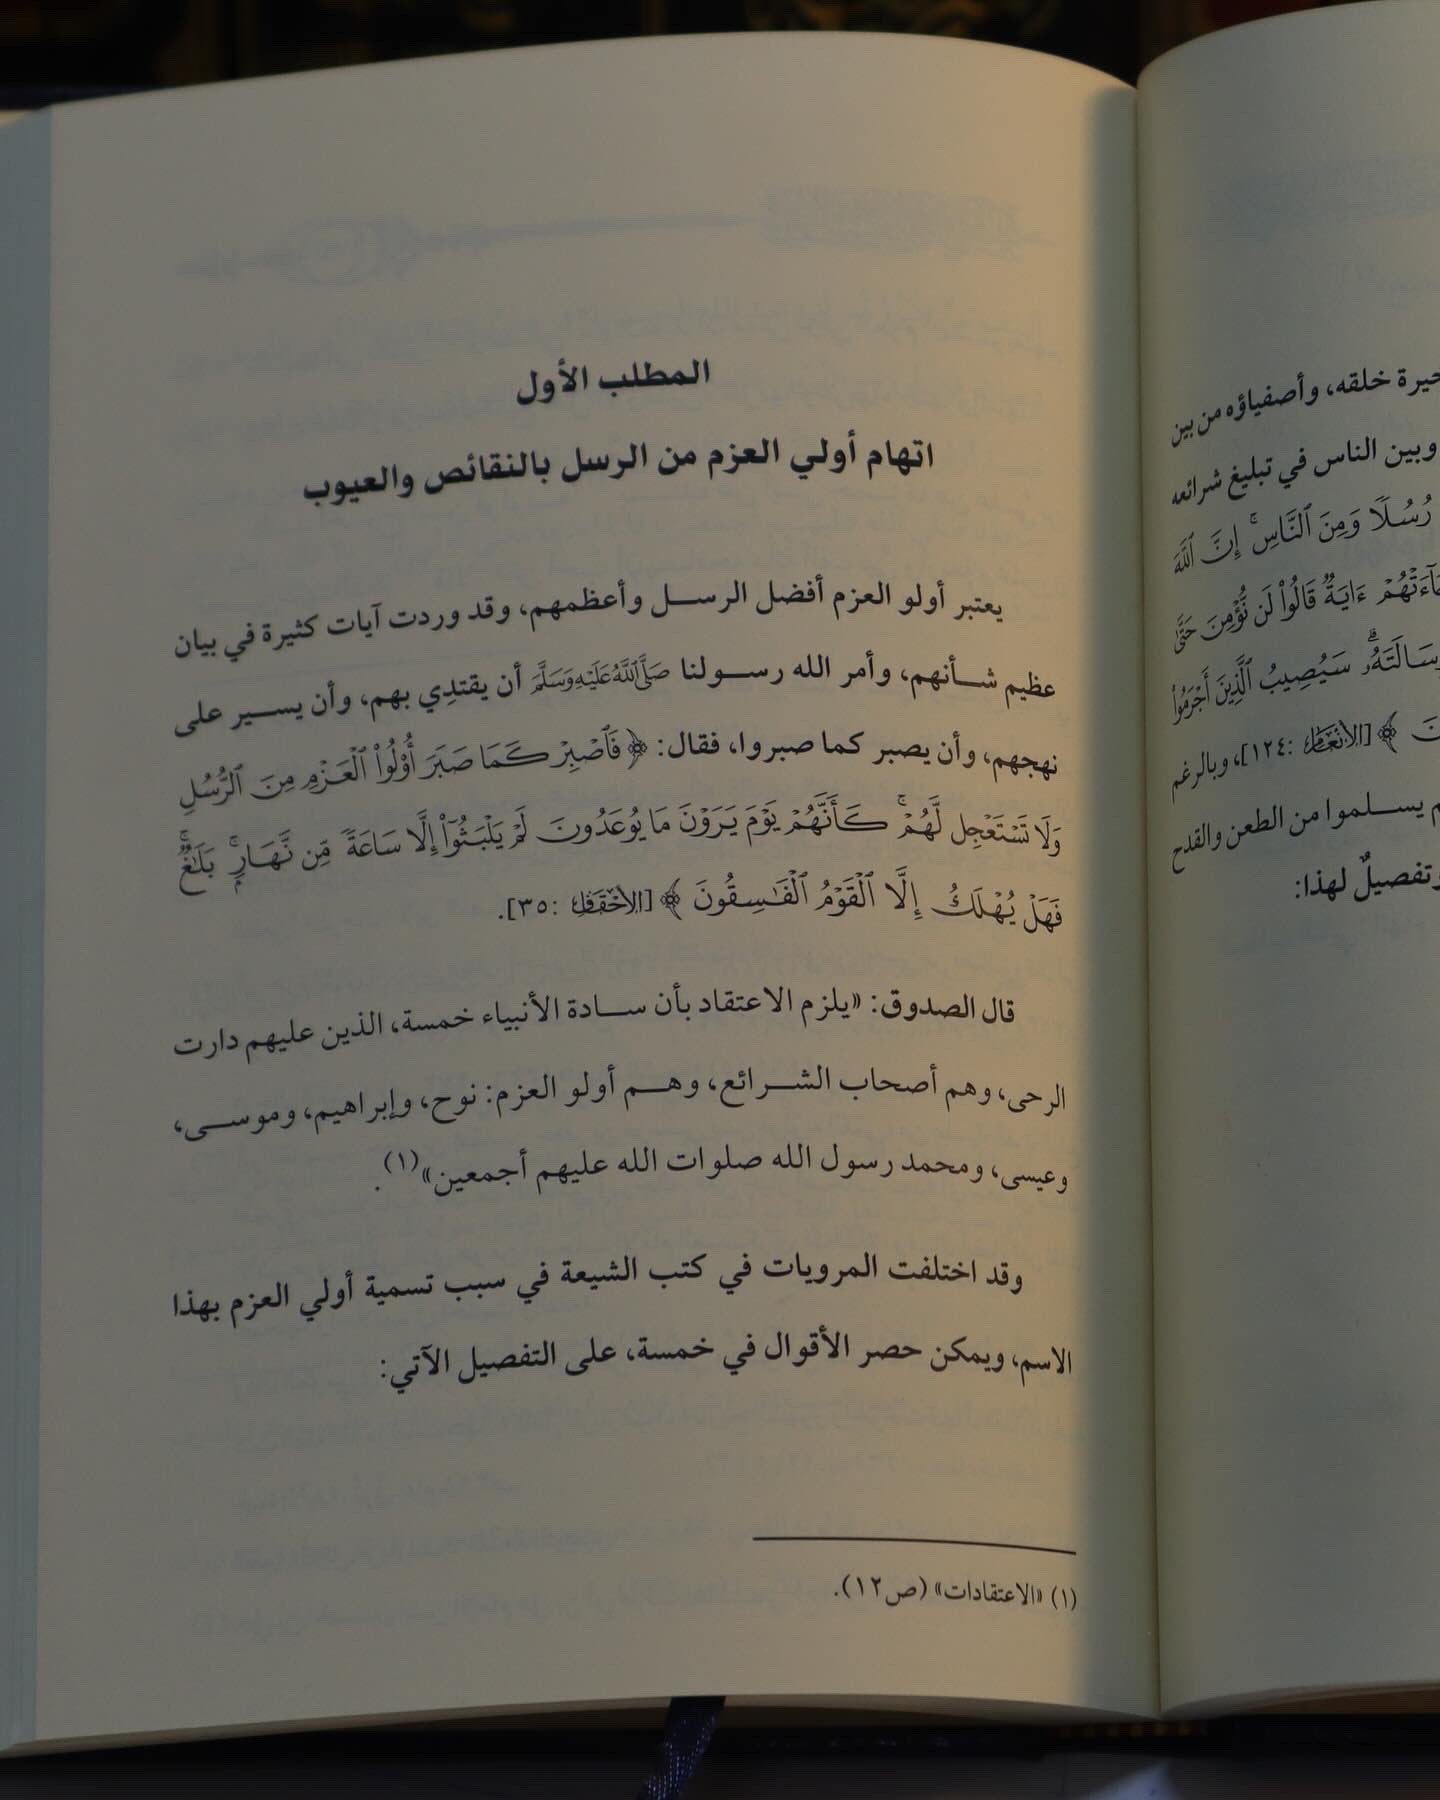 حيرة خلقه، وأصفياؤه من بين
وبين الناس في تبليغ شرائعه
رُسُلًا وَمِنَ ٱلنَّاسِۚ إِنَّ ٱللَّهَ
ءَايَةٞ قَالُواْ لَن نُّؤۡمِنَ حَتَّىٰ
سَيُصِيبُ ٱلَّذِينَ أَجۡرَمُواْ
﴾ [الأنعام: ١٢٤]، وبالرغم
يسلموا من الطعن والقدح
وتفصيلٌ لهذا:
المطلب الأول
اتهام أولي العزم من الرسل بالنقائص والعيوب
يعتبر أولو العزم أفضل الرسل وأعظمهم، وقد وردت آيات كثيرة في بيان
عظيم شأنهم، وأمر الله رسولنا صَلَّىٱللَّهُعَلَيْهِوَسَلَّمَ أن يقتدِي بهم، وأن يسير على
نهجهم، وأن يصبر كما صبروا، فقال: ﴿فَٱصۡبِرۡ كَمَا صَبَرَ أُوْلُواْ ٱلۡعَزۡمِ مِنَ ٱلرُّسُلِ
وَلَا تَسۡتَعۡجِل لَّهُمۡۚ كَأَنَّهُمۡ يَوۡمَ يَرَوۡنَ مَا يُوعَدُونَ لَمۡ يَلۡبَثُوٓاْ إِلَّا سَاعَةٗ مِّن نَّهَارِۭۚ بَلَٰغٞۚ
فَهَلۡ يُهۡلَكُ إِلَّا ٱلۡقَوۡمُ ٱلۡفَٰسِقُونَ﴾ [الأحقاف: ٣٥].
قال الصدوق: «يلزم الاعتقاد بأن سادة الأنبياء خمسة، الذين عليهم دارت
الرحى، وهم أصحاب الشرائع، وهم أولو العزم: نوح، وإبراهيم، وموسى،
وعيسى، ومحمد رسول الله صلوات الله عليهم أجمعين»(١).
وقد اختلفت المرويات في كتب الشيعة في سبب تسمية أولي العزم بهذا
الاسم، ويمكن حصر الأقوال في خمسة، على التفصيل الآتي:
(١) «الاعتقادات» (ص١٢).